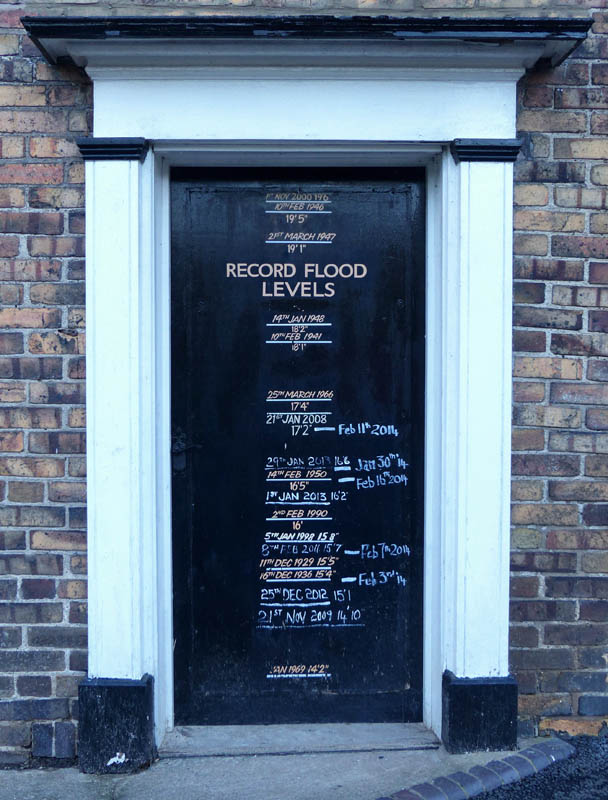 1ST NOV 2000 19'6
10TH FEB 1946
19'5"
21ST MARCH 1947
19'1"
RECORD FLOOD
LEVELS
14TH JAN 1948
18'2"
10TH FEB 1941
18'1"
25TH MARCH 1966
17'4"
21ST JAN 2008
17'2" Feb 11th 2014
29TH JAN 2013 16'6 Jan 30th 14
14TH FEB 1950
16'5" Feb 16th 2014
1ST JAN 2013 16'2"
2ND FEB 1990
16'
5TH JAN 1998 15'8"
8TH FEB 2011 15'7 Feb 7th 2014
11TH DEC 1929 15'5"
16TH DEC 1936 15'4" Feb 3rd 14
25TH DEC 2012 15'1
21ST NOV 2009 14'10
JAN 1969 14'2"